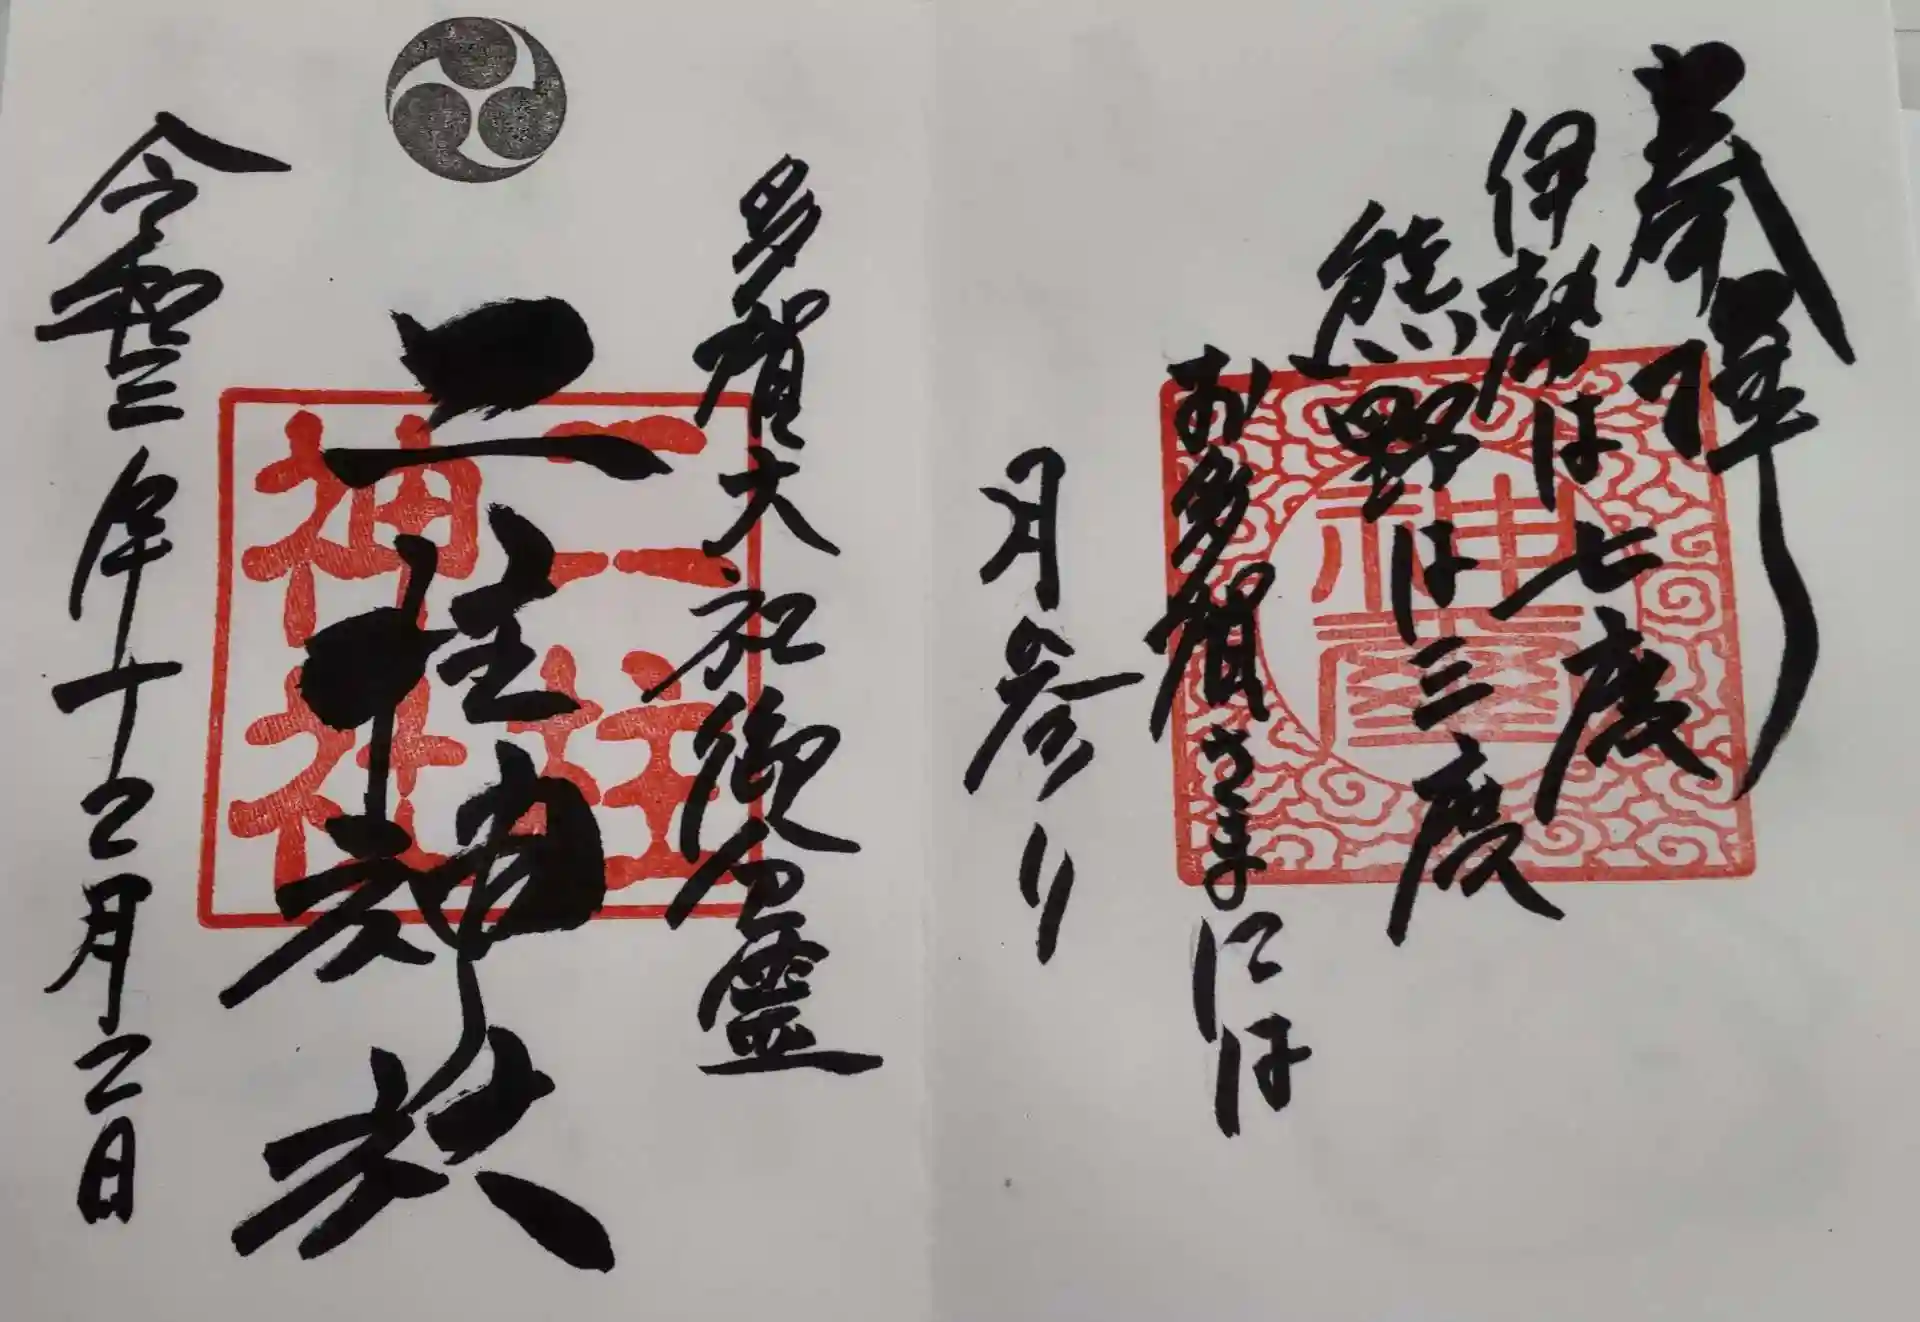 奉拝
伊勢は七度
熊野は三度
お多賀さまには
月参り
多賀大社御分霊
二柱神社
二柱神社
令和三年十二月二日